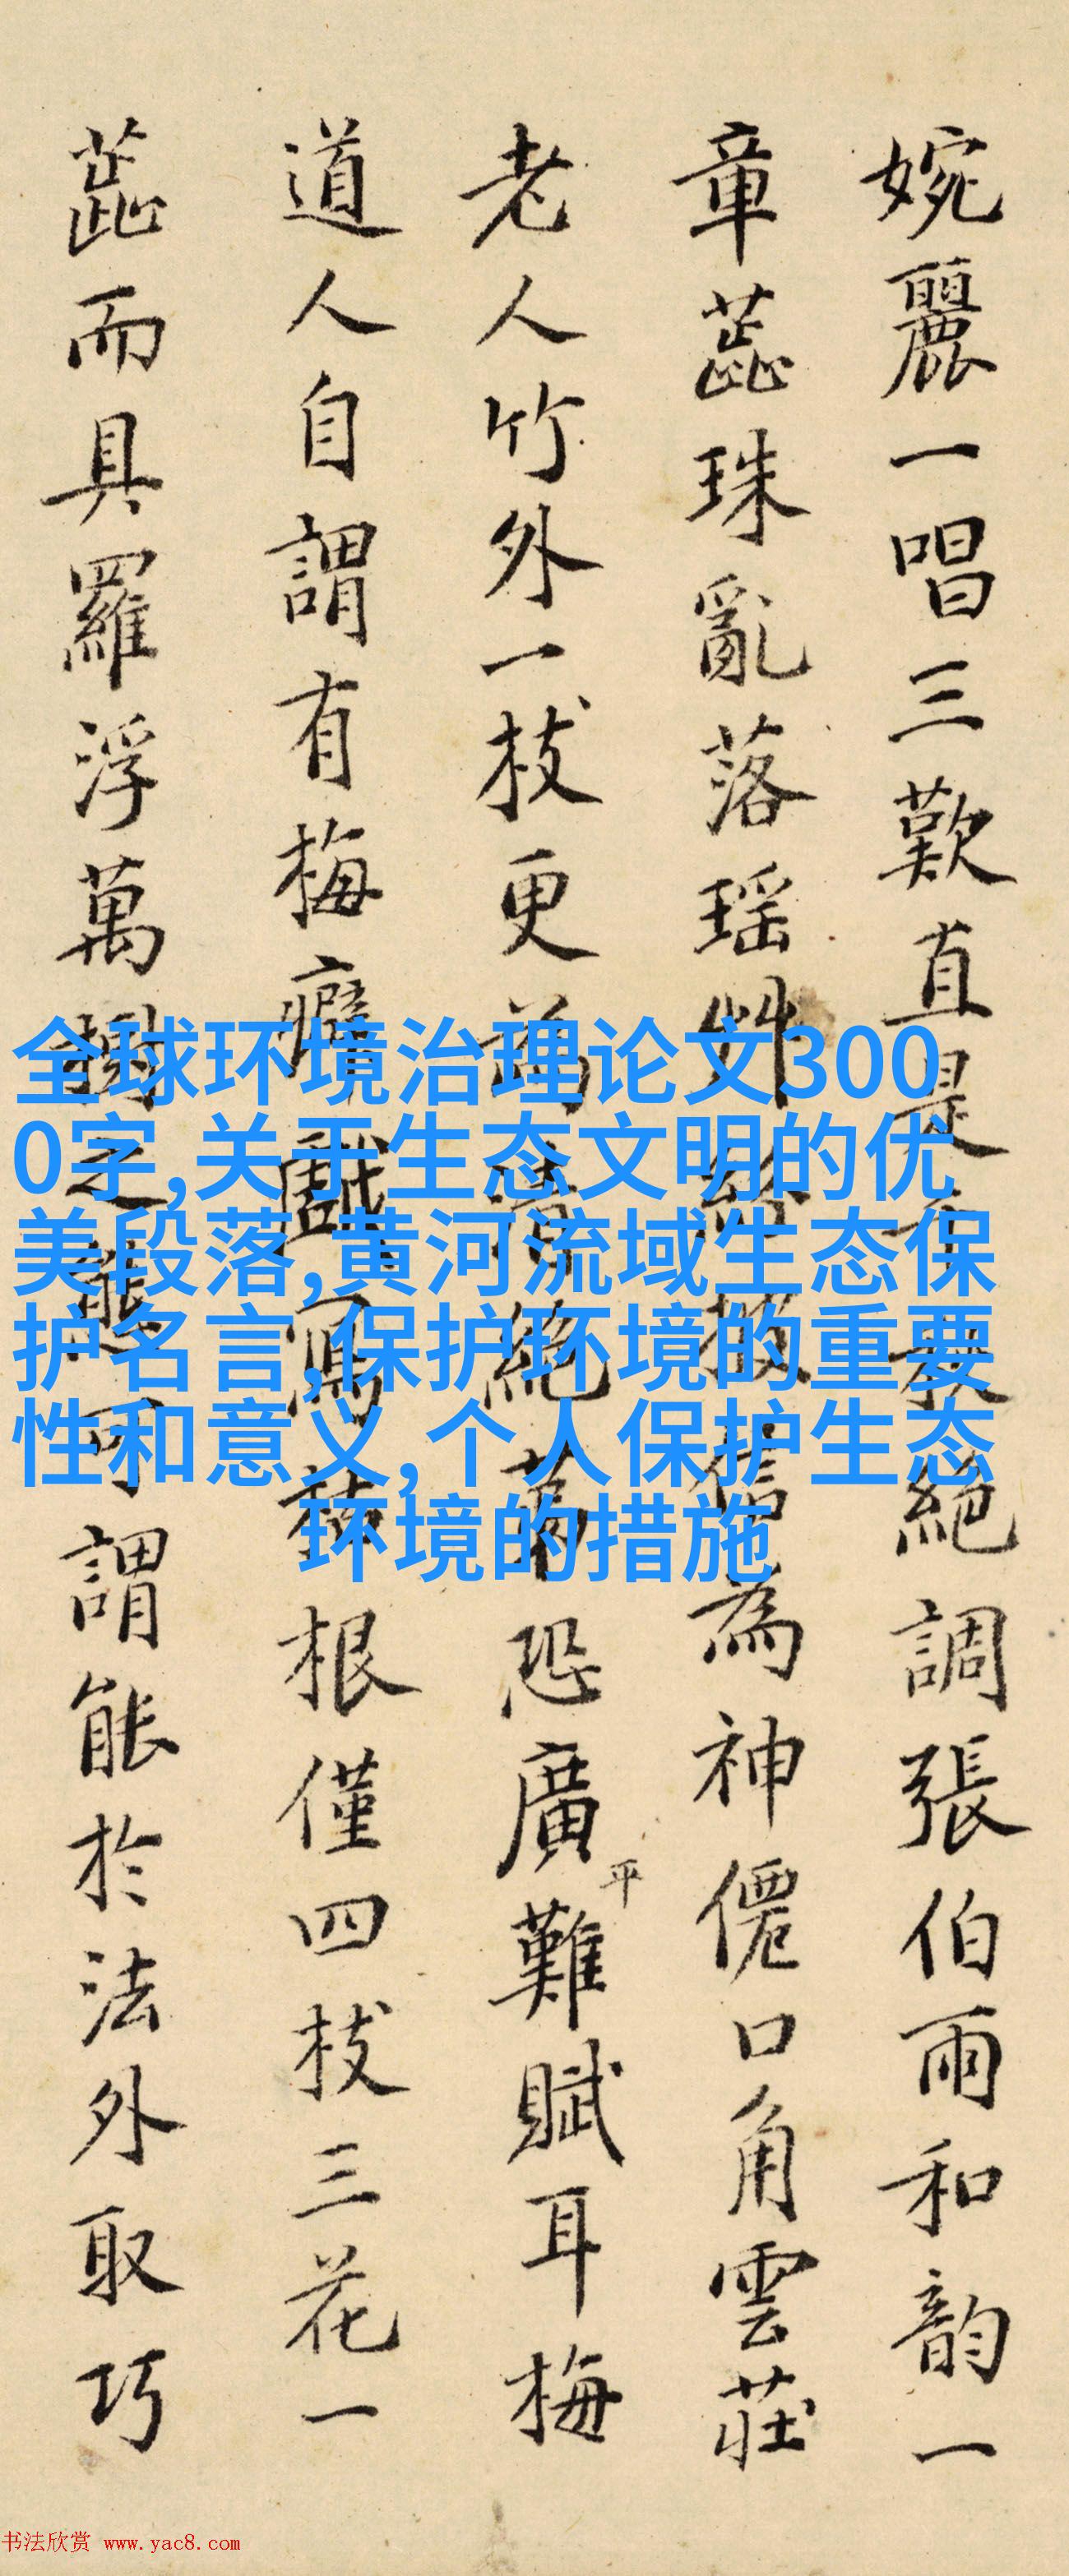 婉麗一唱三歎直是千秋絕調張伯雨和韵一
章蕋珠亂落瑶艸紛披信為神僊口角雲莊
老人竹外一枝更為清絕第恐廣平難賦耳梅
道人自謂有梅癖戲寫數根僅四枝三花一
蕋而具羅浮萬樹之態可謂能於法外取巧
全球环境治理论文300
0字,关于生态文明的优
美段落,黄河流域生态保
护名言,保护环境的重要
性和意义,个人保护生态
环境的措施
书法欣赏 www.yac8.com